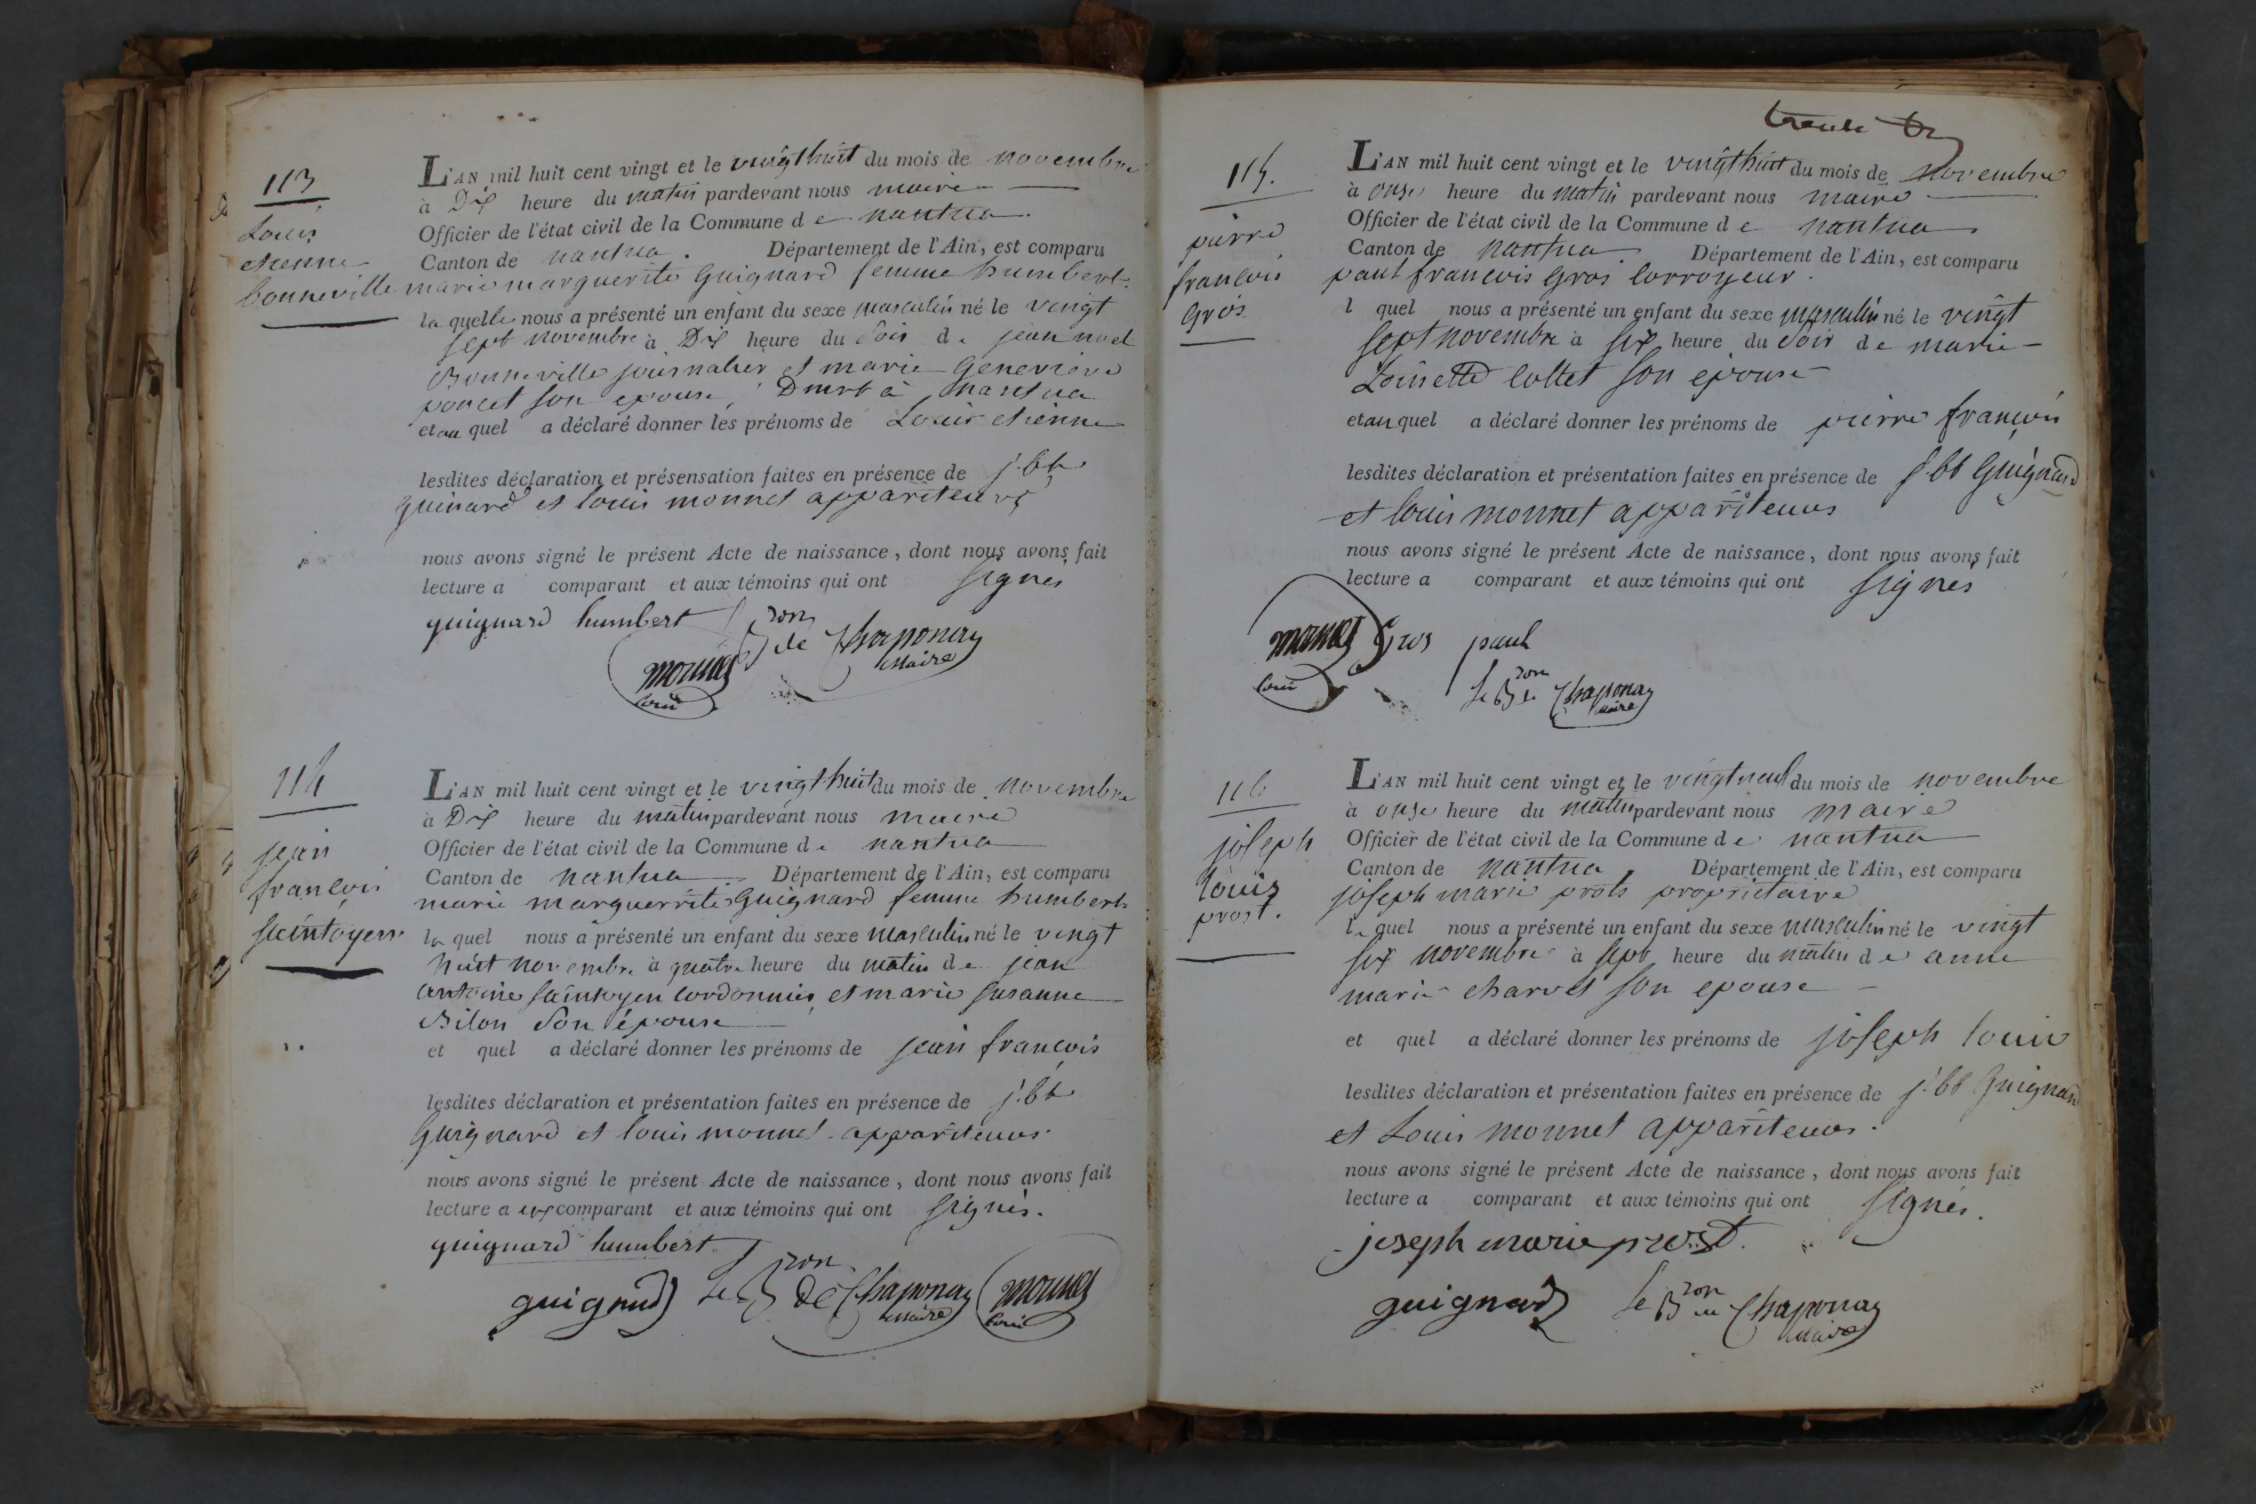 113
Louis
etienne
bonneville
L'AN mil huit cent vingt et le vingt huit du mois de novembre
à Dix heure du matin pardevant nous maire
Officier de l'état civil de la Commune de nantua
Canton de nantua. Département de l'Ain, est comparu
marie marguerite Guignard femme humbert
la quelle nous a présenté un enfant du sexe masculin né le vingt
sept novembre à Dix heure du soir de jean noel
Bonneville journalier et marie Genevieve
poncet son epouse, Dmrt à nantua
et au quel a déclaré donner les prénoms de Louis etienne
lesdites déclaration et présensation faites en présence de j. bte
guinard et louis monnet appariteurs
nous avons signé le présent Acte de naissance, dont nous avons fait
lecture a comparant et aux témoins qui ont signés
guignard humbert
le Bron de Chaponay
Maire
monnet
louis
114
jean
françois
saintoyen
L'AN mil huit cent vingt et le vingt huit du mois de novembre
à Dix heure du matin pardevant nous maire
Officier de l'état civil de la Commune de nantua
Canton de nantua Département de l'Ain, est comparu
marie marguerrite Guignard femme humbert
la quel nous a présenté un enfant du sexe masculin né le vingt
huit novembre à quatre heure du matin de jean
antoine saintoyen cordonnier et marie susanne
Bilon son épouse
et quel a déclaré donner les prénoms de jean françois
lesdites déclaration et présentation faites en présence de j. bte
Guignard et louis monnet appariteurs
nous avons signé le présent Acte de naissance, dont nous avons fait
lecture a comparant et aux témoins qui ont signés.
guignard humbert
guignard le Bron de Chaponay monnet
Maire louis
trente
115.
pierre
françois
Gros
L'AN mil huit cent vingt et le vingt huit du mois de novembre
à onse heure du matin pardevant nous maire
Officier de l'état civil de la Commune de nantua
Canton de nantua Département de l'Ain, est comparu
paul françois Gros corroyeur.
l quel nous a présenté un enfant du sexe masculin né le vingt
sept novembre à six heure du soir de marie
Loisette collet son epouse
et au quel a déclaré donner les prénoms de pierre françois
lesdites déclaration et présentation faites en présence de j. bt Guignard
et louis monnet appariteurs
nous avons signé le présent Acte de naissance, dont nous avons fait
lecture a comparant et aux témoins qui ont signés
monnet Gros paul
louis
le Bron de Chaponay
Maire
116
joseph
louis
prost.
L'AN mil huit cent vingt et le vingt neuf du mois de novembre
à onse heure du matin pardevant nous maire
Officier de l'état civil de la Commune de nantua
Canton de nantua Département de l'Ain, est comparu
joseph marie prots proprietaire
le quel nous a présenté un enfant du sexe masculin né le vingt
six novembre à sept heure du matin de anne
marie charvet son epouse
et quel a déclaré donner les prénoms de joseph louis
lesdites déclaration et présentation faites en présence de j. bt Guignard
et Louis monnet appariteurs.
nous avons signé le présent Acte de naissance, dont nous avons fait
lecture a comparant et aux témoins qui ont signés.
joseph marie prost.
guignard le Bron de Chaponay
Maire